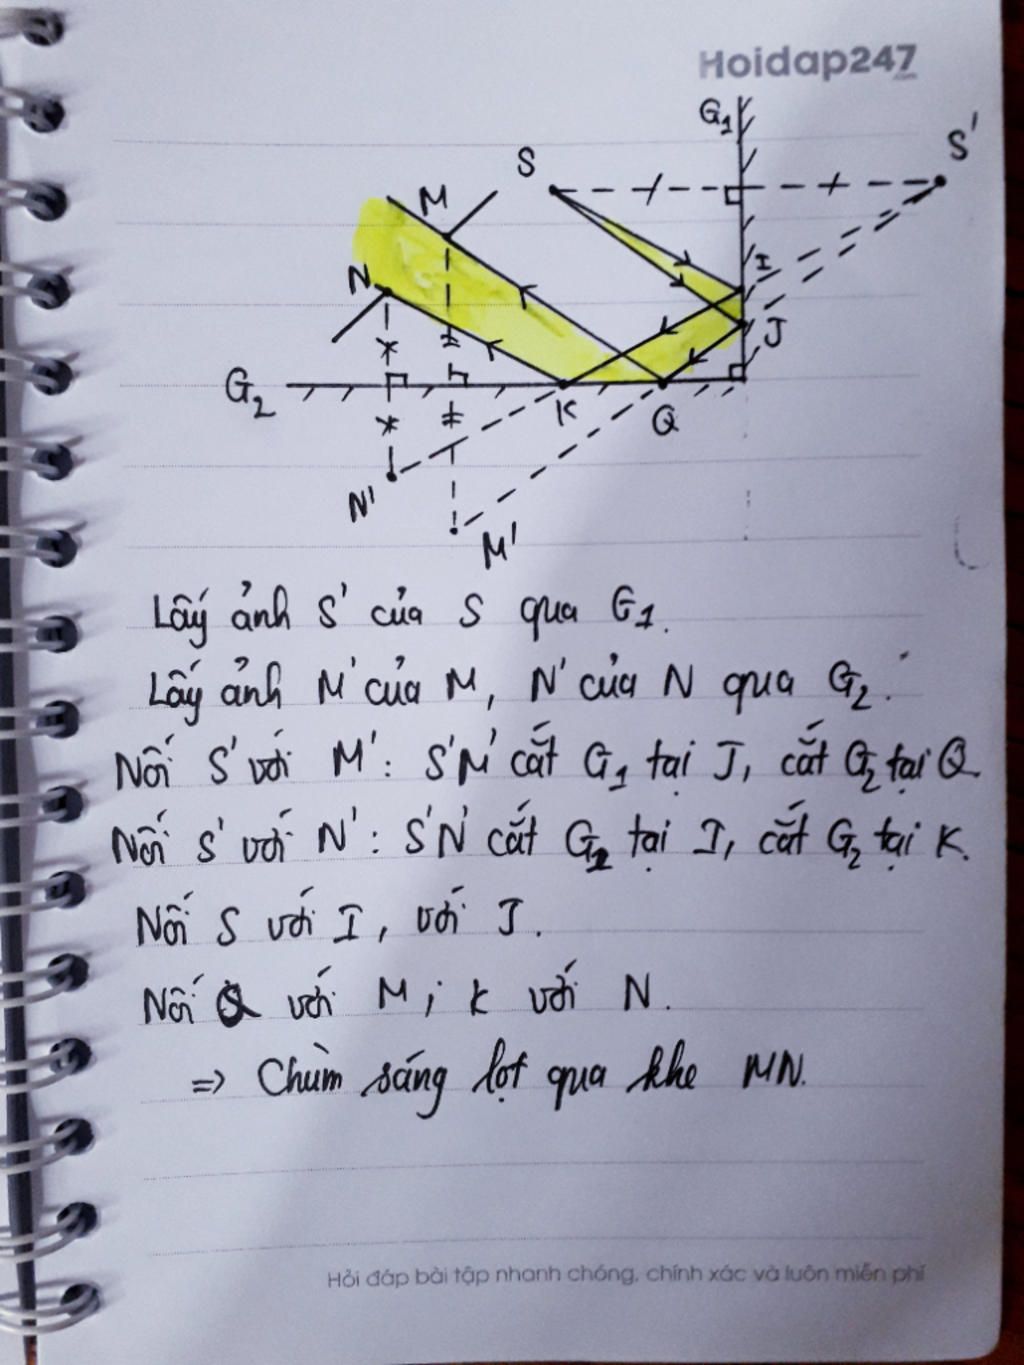 Hoidap247
.com
G1
S'
S
M
I
N
J
G2
K
Q
N'
M'
Lấy ảnh S' của S qua G1.
Lấy ảnh M' của M, N' của N qua G2.
Nối S' với M': S'M' cắt G1 tại J, cắt G2 tại Q.
Nối S' với N': S'N' cắt G1 tại I, cắt G2 tại K.
Nối S với I, với J.
Nối Q với M; K với N.
=> Chùm sáng lọt qua khe MN.
Hỏi đáp bài tập nhanh chóng, chính xác và luôn miễn phí